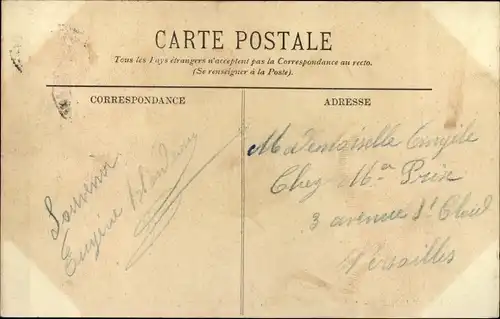 CARTE POSTALE
Tous les Pays étrangers n'acceptent pas la Correspondance au recto.
(Se renseigner à la Poste).
CORRESPONDANCE
Souvenir
Eugène
ADRESSE
Mademoiselle
Chez Mme Prix
3 avenue St Cloud
Versailles